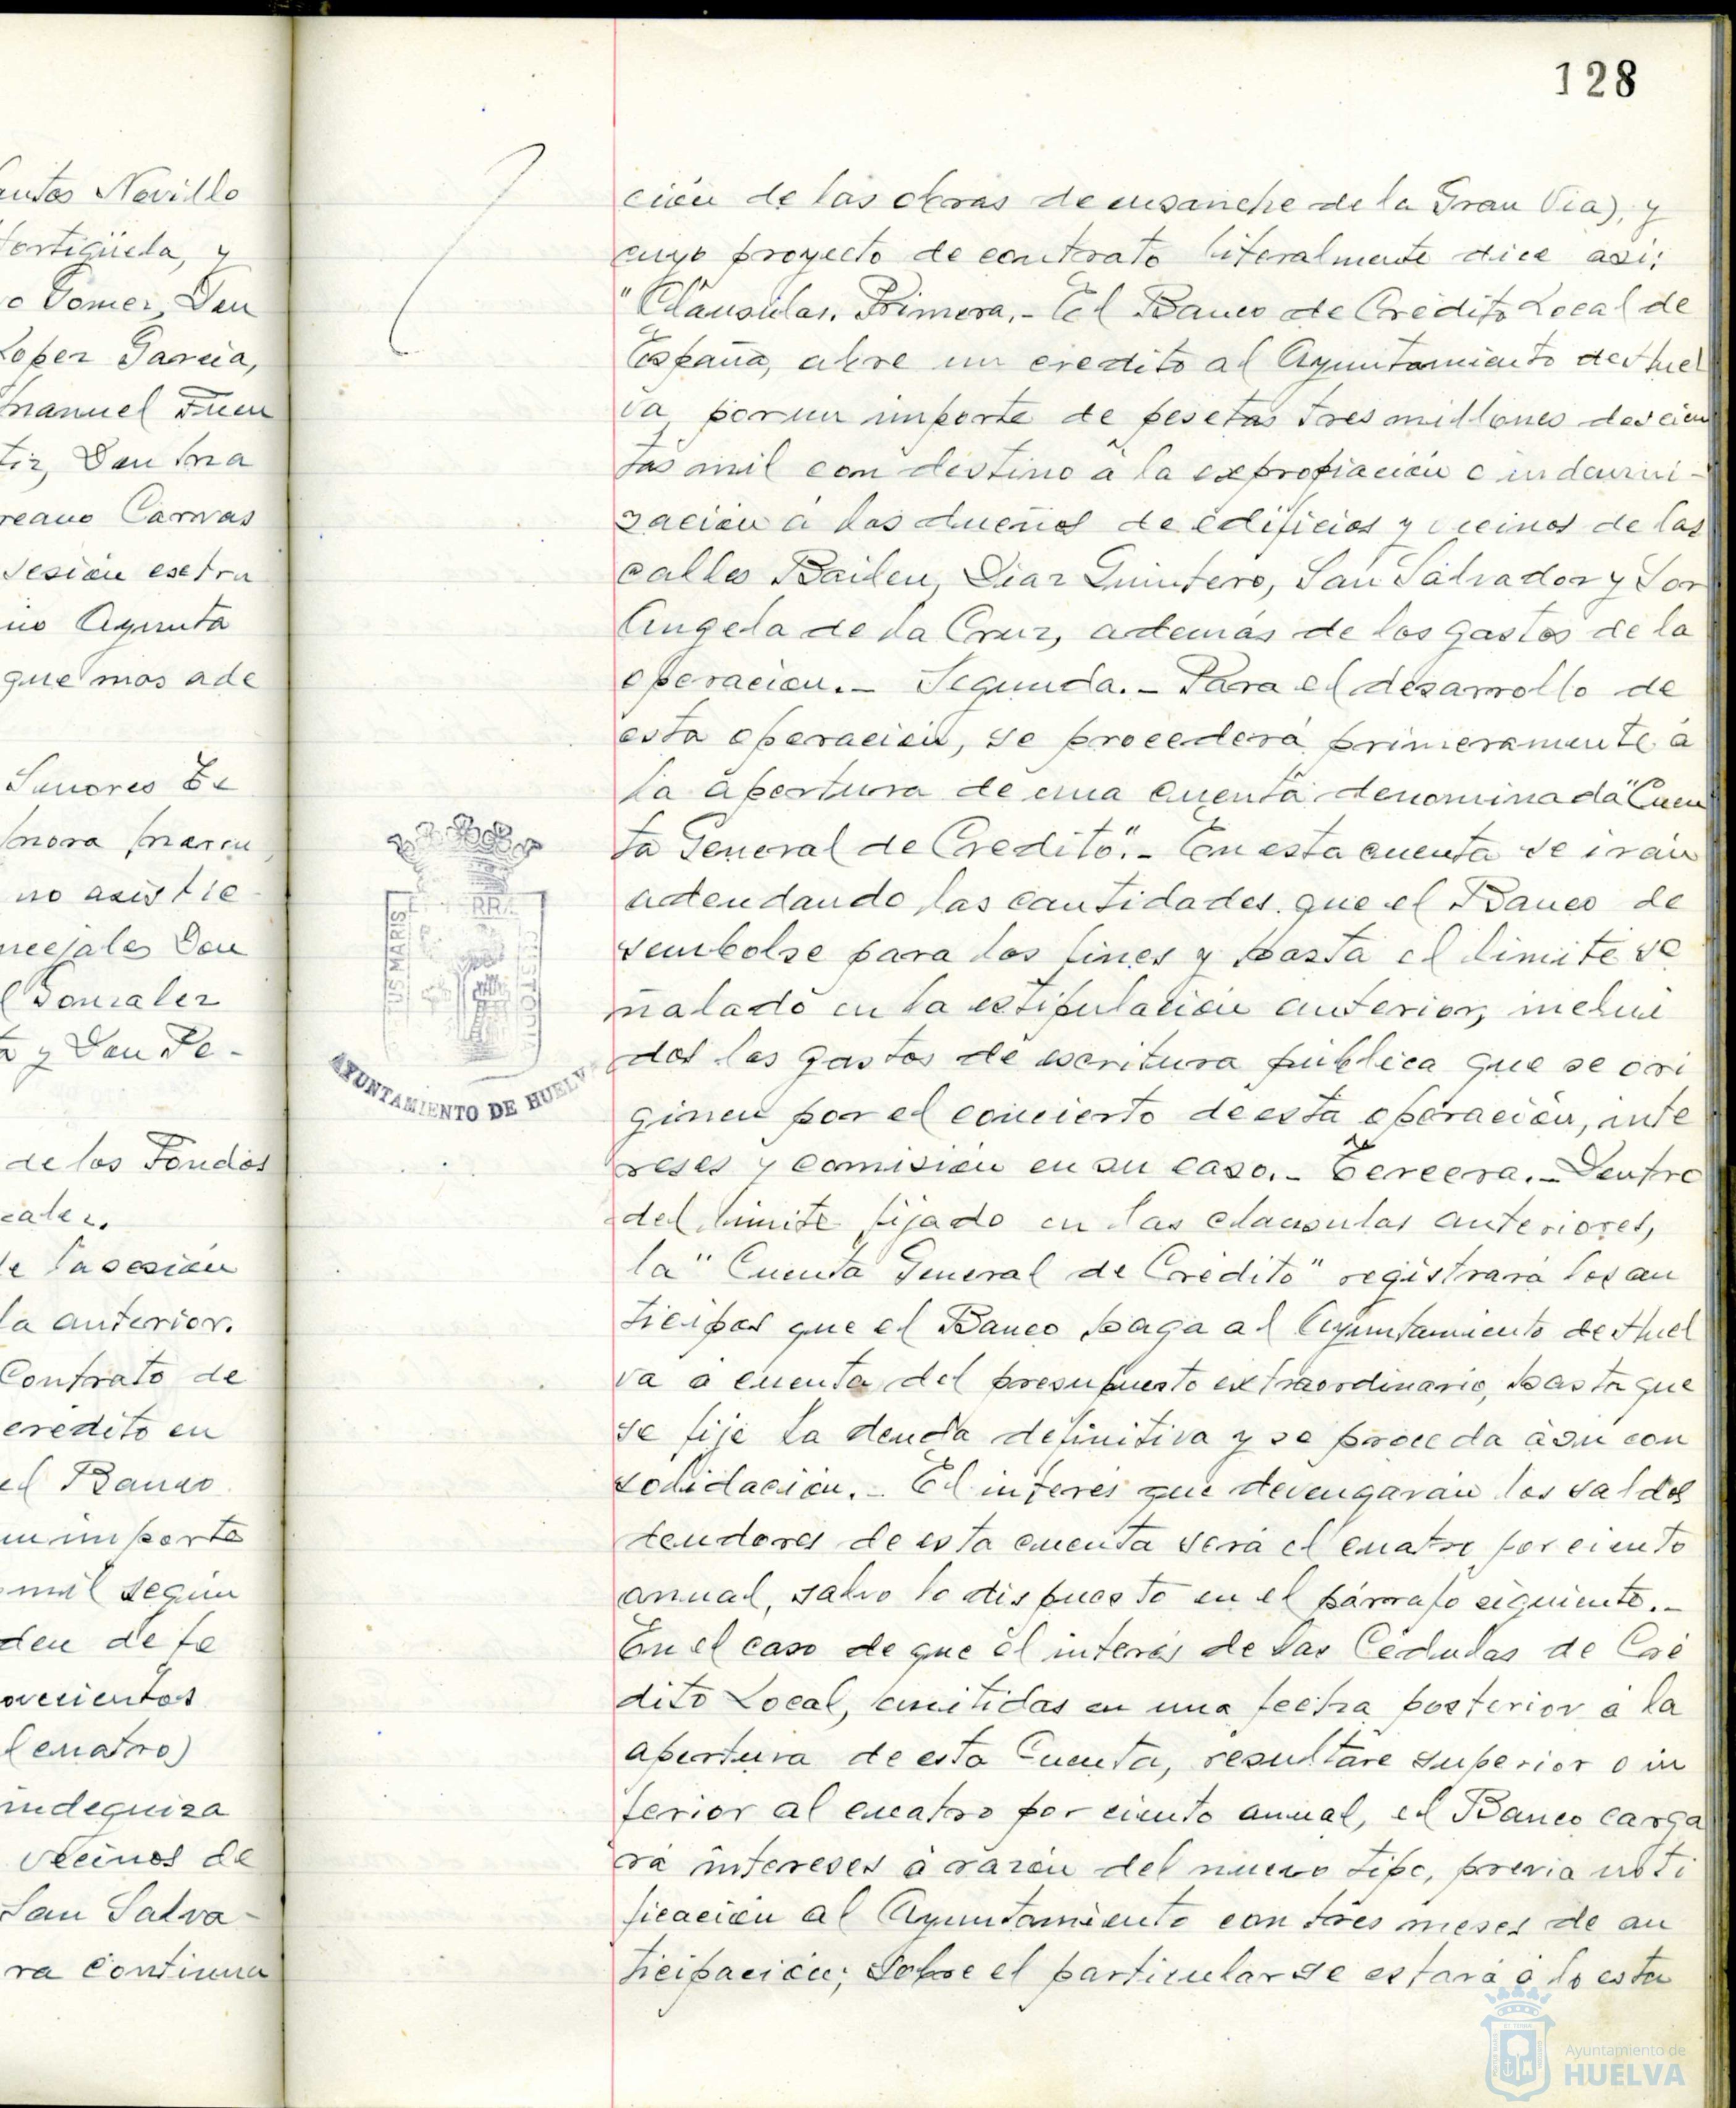 128
Novillo
y
Gomez, Don
Lopez Garcia,
Manuel Fuen
tiz, Don Ma
reano Carwas
sesion extra
no Ayunta
que mas ade
Senores Te
mora, marcu
no asistie
ncejales Don
l Gonzalez
a y Don Pe-
de los Fondos
cales.
de la sesión
la anterior.
Contrato de
credito en
el Banco
un importe
mil según
den de fe
ovecientos
(cuatro)
indegniza
vecinos de
San Salva-
ra continua
ción de las obras de ensanche de la Gran Via), y
cuyo proyecto de contrato literalmente dice asi:
"Cláusulas. Primera.- El Banco de Crédito Local de
España, abre un credito al Ayuntamiento de Huel
va, por un importe de pesetas tres millones doscien
tas mil con destino á la expropiación e indemni-
zación a los dueños de edificios y vecinos de las
calles Bailen, Diaz Quintero, San Salvador y Sor
Angela de la Cruz, además de los gastos de la
operacion.- Segunda.- Para el desarrollo de
esta operación, se procederá primeramente á
la apertura de una cuenta denominada "Cuen
ta General de Credito".- En esta cuenta se irán
adeudando las cantidades que el Banco de
sembolse para los fines y hasta el limite se
ñalado en la estipulación anterior, inclui
dos los gastos de escritura pública que se ori
ginen por el concierto de esta operación, inte
reses y comisión en su caso.- Tercera.- Dentro
del limite fijado en las clausulas anteriores,
la "Cuenta General de Crédito" registrará los an
ticipos que el Banco haga al Ayuntamiento de Huel
va a cuenta del presupuesto extraordinario, hasta que
se fije la deuda definitiva y se proceda á su con
solidación.- El interés que devengarán los saldos
deudores de esta cuenta será el cuatro por ciento
anual, salvo lo dispuesto en el párrafo siguiente.-
En el caso de que el interés de las Cédulas de Cré
dito Local, emitidas en una fecha posterior á la
apertura de esta Cuenta, resultare superior o in
ferior al cuatro por ciento anual, el Banco carga
rá intereses á razón del nuevo tipo, previa noti
ficación al Ayuntamiento con tres meses de an
ticipación; sobre el particular se estará á lo esta
AYUNTAMIENTO DE HUELVA
Ayuntamiento de
HUELVA